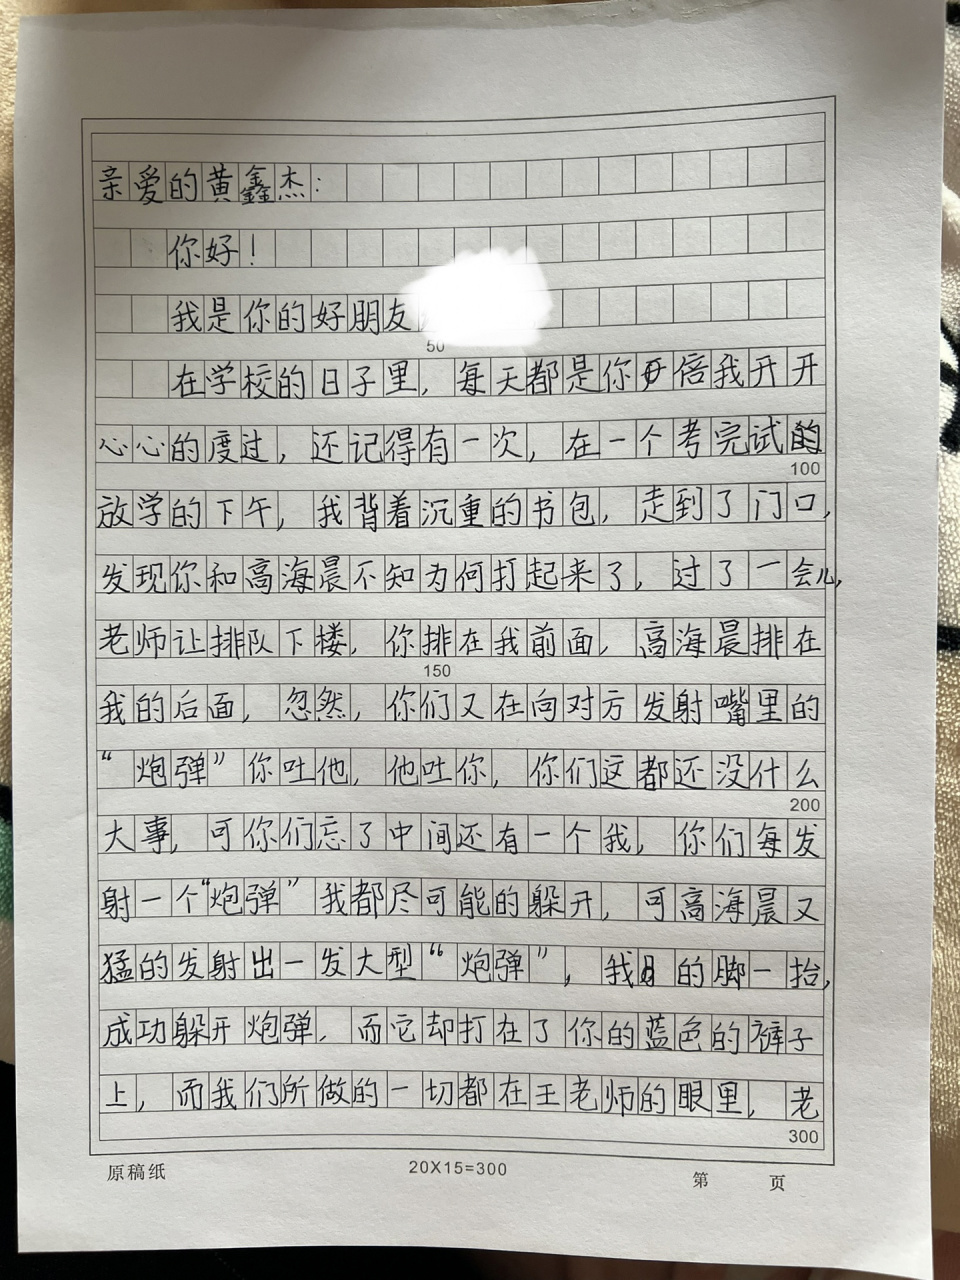 亲爱的黄鑫杰:
你好!
我是你的好朋友
50
在学校的日子里,每天都是你倍我开开
心心的度过,还记得有一次,在一个考完试的
100
放学的下午,我背着沉重的书包,走到了门口,
发现你和高海晨不知为何打起来了,过了一会儿,
老师让排队下楼,你排在我前面,高海晨排在
150
我的后面,忽然,你们又在向对方发射嘴里的
“炮弹”你吐他,他吐你,你们这都还没什么
200
大事,可你们忘了中间还有一个我,你们每发
射一个“炮弹”我都尽可能的躲开,可高海晨又
猛的发射出一发大型“炮弹”,我的脚一抬,
成功躲开炮弹,而它却打在了你的蓝色的裤子
上,而我们所做的一切都在王老师的眼里,老
300
原稿纸 20X15=300 第 页